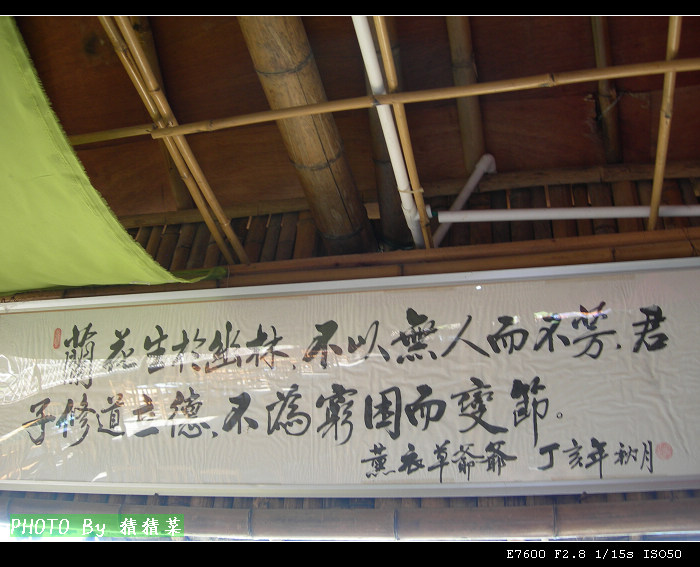 蘭花生於幽林、不以無人而不芳、君
子修道立德、不為窮困而變節。
薰衣草爺爺 丁亥年秋月
PHOTO By 猜猜菜
E7600 F2.8 1/15s ISO50